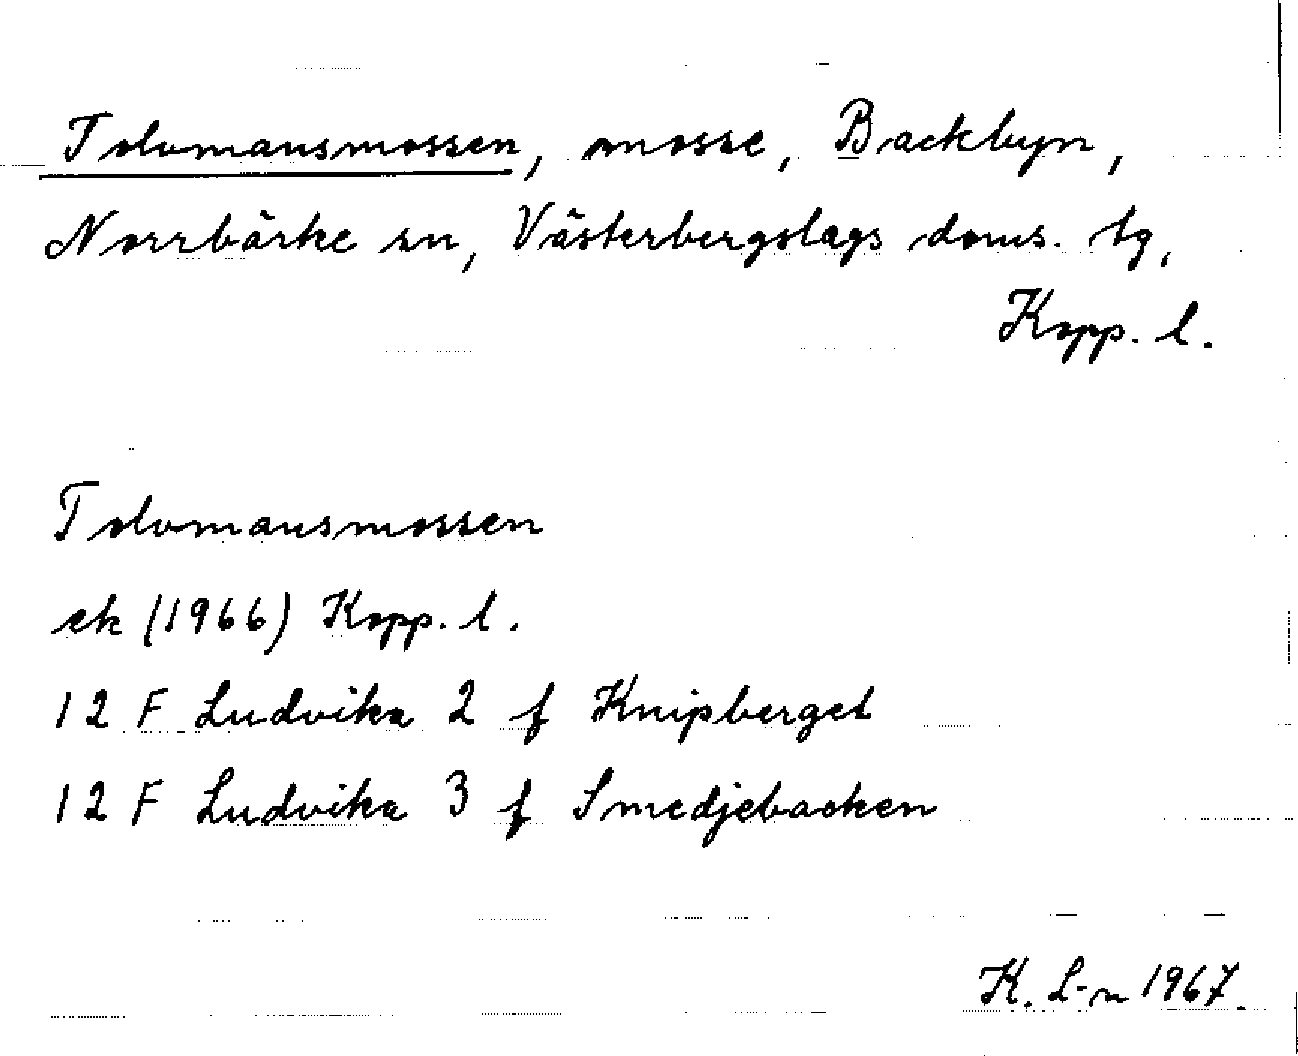 Tolvmansmossen, mosse, Backbyn,
Norrbärke sn, Västerbergslags doms. tg,
Kopp. l.
Tolvmansmossen
ek (1966) Kopp. l.
12 F Ludvika 2 f Knipberget
12 F Ludvika 3 f Smedjebacken
K. L-n 1967